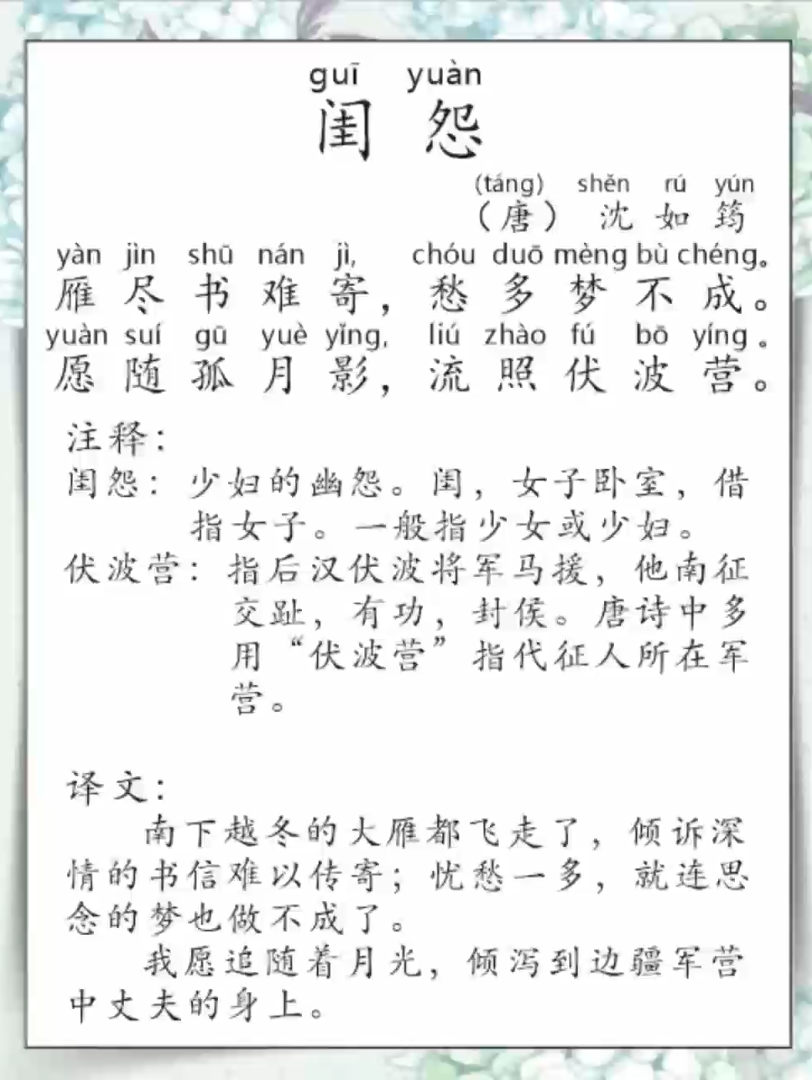 guī yuàn
闺 怨
(táng) shěn rú yún
（唐） 沈 如 筠
yàn jìn shū nán jì, chóu duō mèng bù chéng。
雁 尽 书 难 寄，愁 多 梦 不 成。
yuàn suí gū yuè yǐng, liú zhào fú bō yíng 。
愿 随 孤 月 影，流 照 伏 波 营。
注释：
闺怨：少妇的幽怨。闺，女子卧室，借
指女子。一般指少女或少妇。
伏波营：指后汉伏波将军马援，他南征
交趾，有功，封侯。唐诗中多
用“伏波营”指代征人所在军
营。
译文：
南下越冬的大雁都飞走了，倾诉深
情的书信难以传寄；忧愁一多，就连思
念的梦也做不成了。
我愿追随着月光，倾泻到边疆军营
中丈夫的身上。